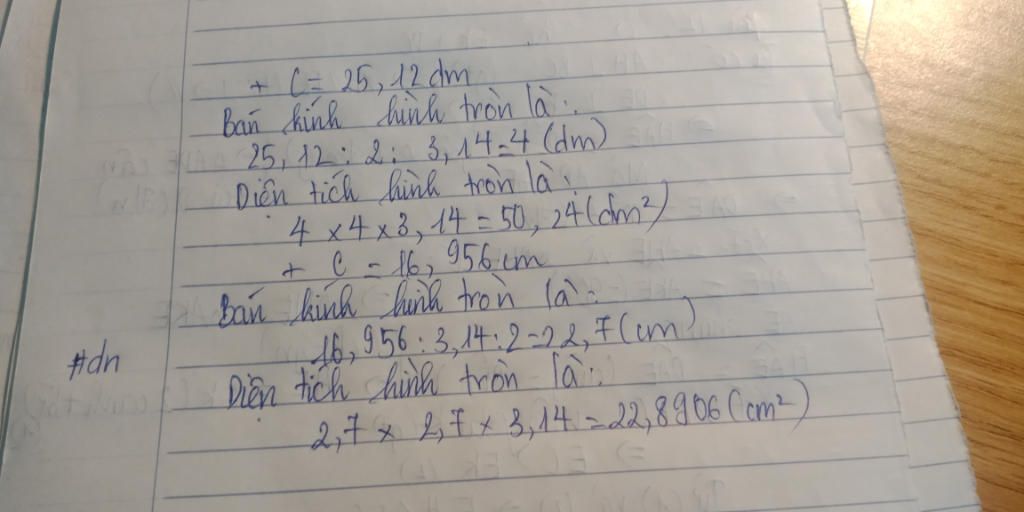 + C = 25,12 dm
Bán kính hình tròn là:
25,12 : 2 : 3,14 = 4 (dm)
Diện tích hình tròn là:
4 × 4 × 3,14 = 50,24 (dm²)
+ C = 16,956 cm
Bán kính hình tròn là:
16,956 : 3,14 : 2 = 2,7 (cm)
#dn
Diện tích hình tròn là:
2,7 × 2,7 × 3,14 = 22,8906 (cm²)